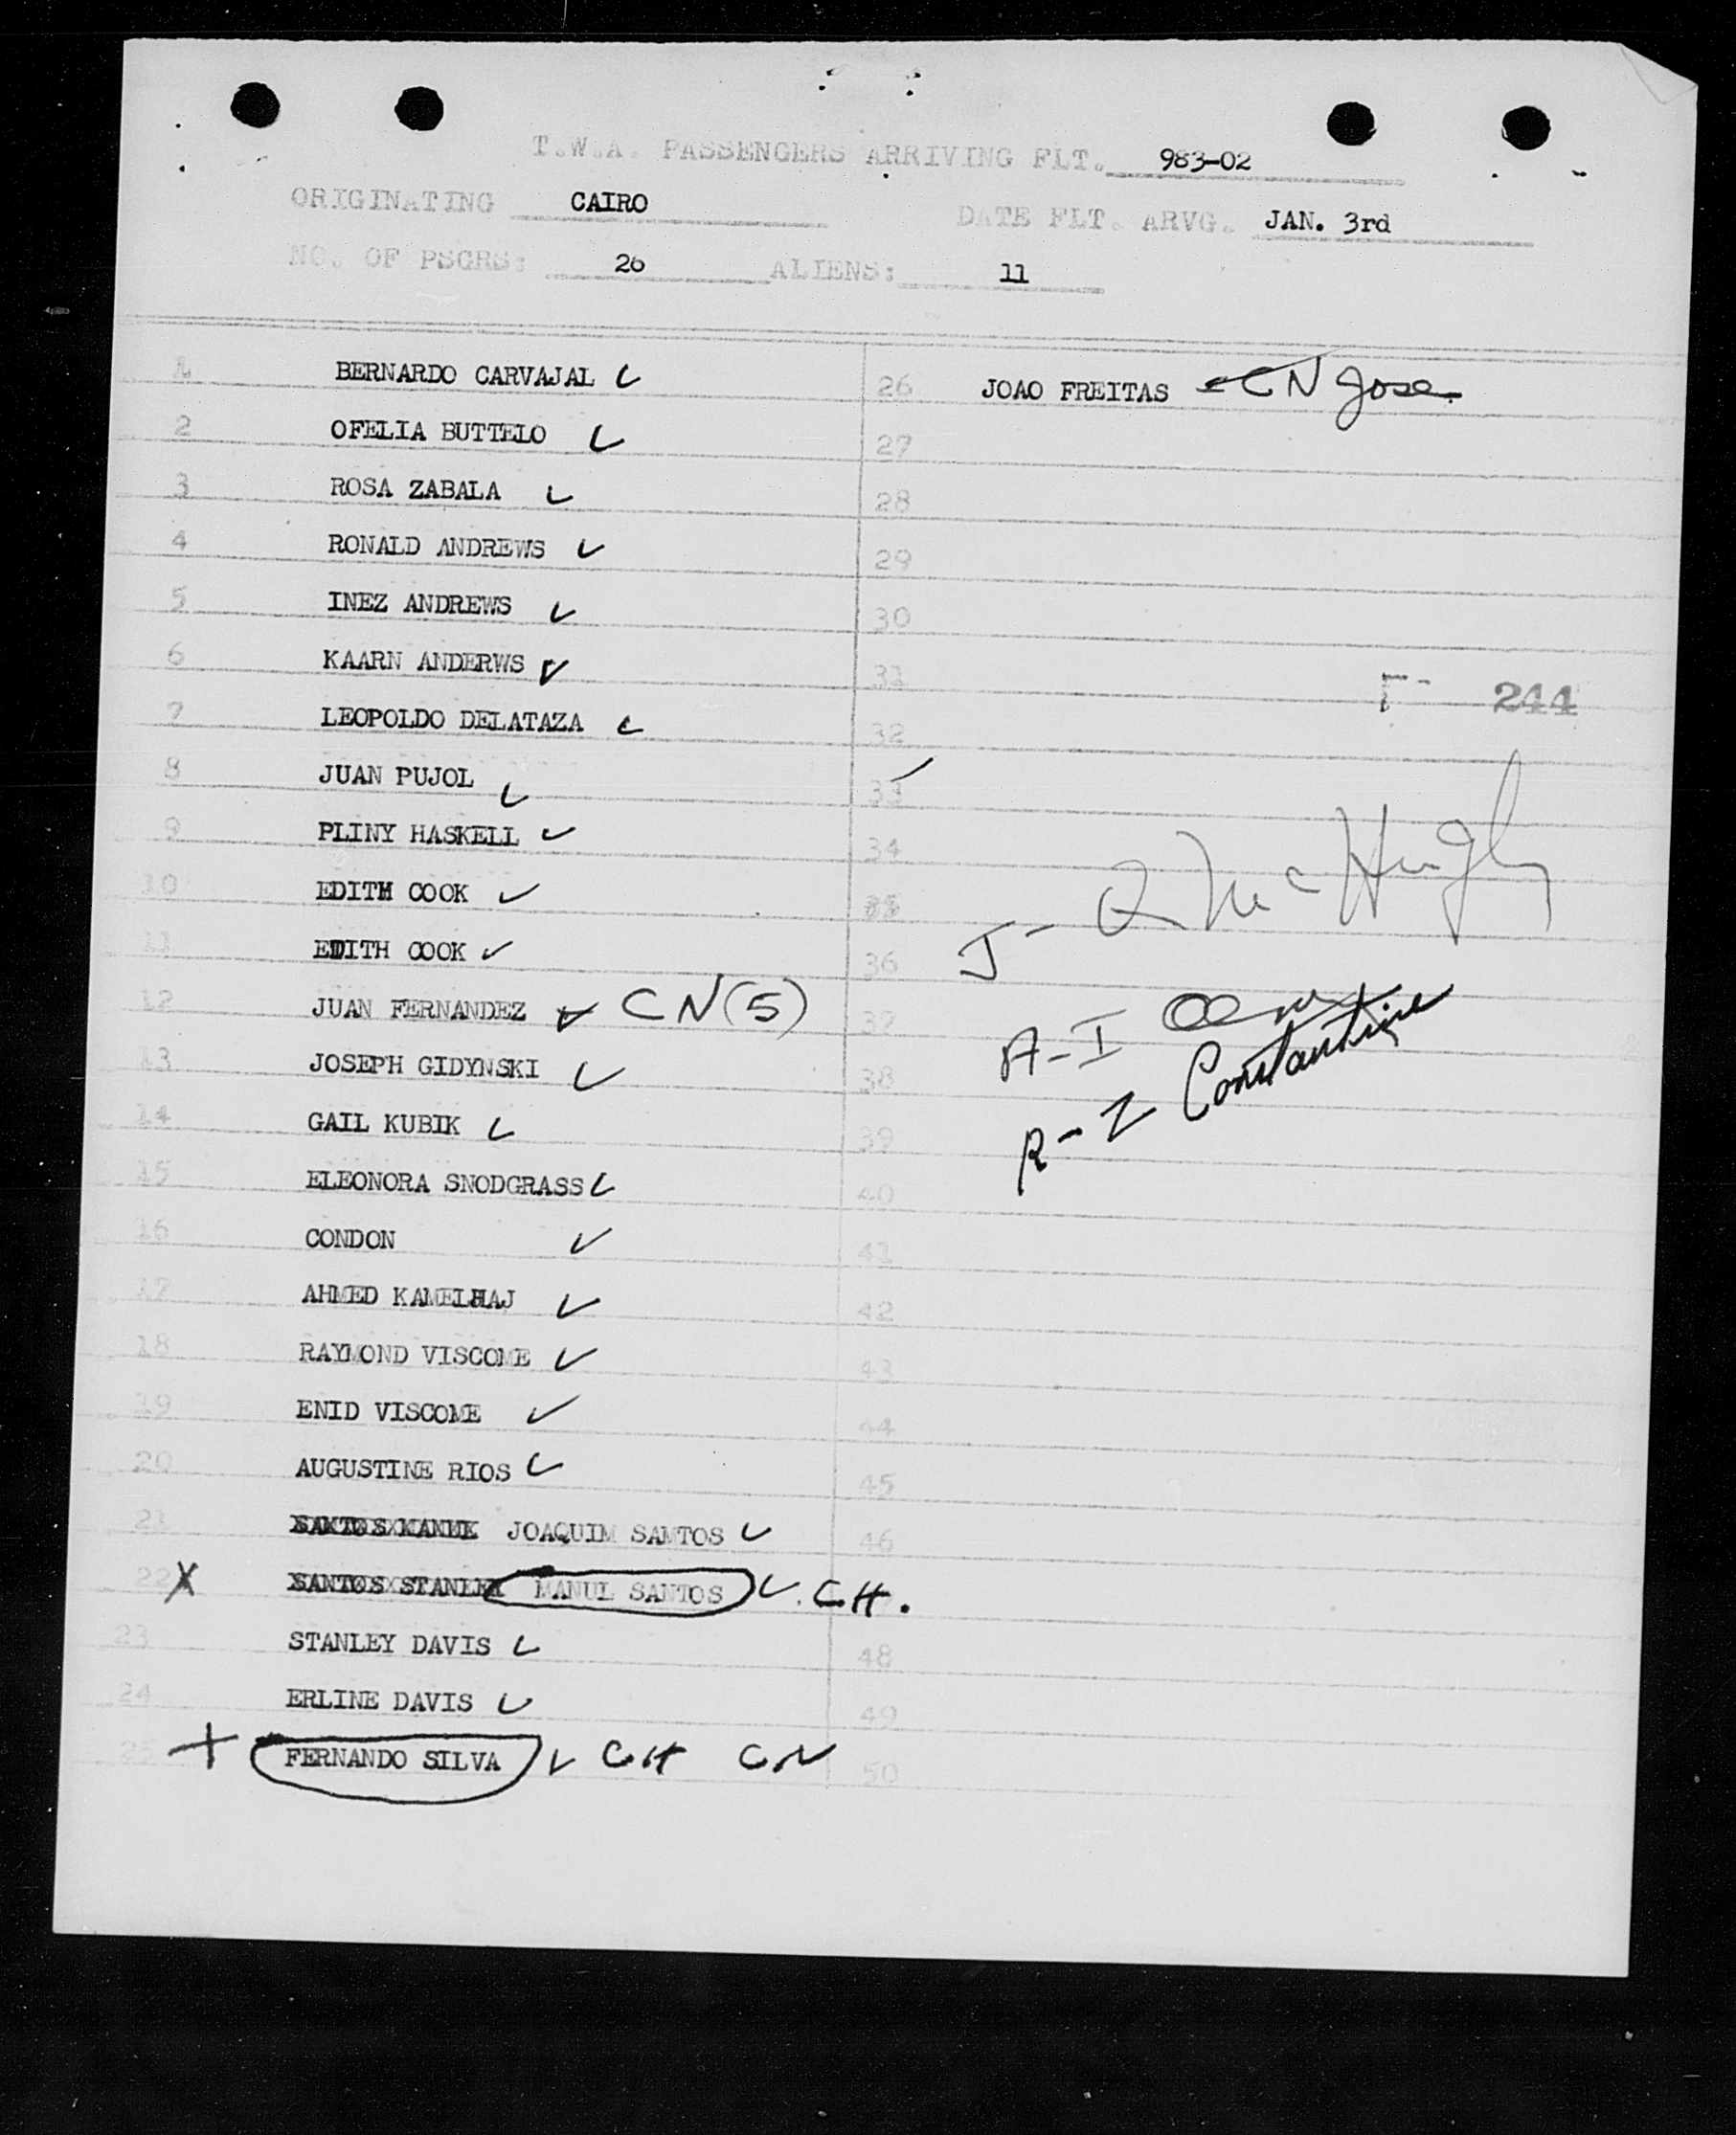 T.W.A. PASSENGERS ARRIVING FLT. 983-02
ORIGINATING CAIRO DATE FLT. ARVG. JAN. 3rd
NO. OF PSGRS: 26 ALIENS: 11
1 BERNARDO CARVAJAL
2 OFELIA BUTTELO
3 ROSA ZABALA
4 RONALD ANDREWS
5 INEZ ANDREWS
6 KAARN ANDERWS
7 LEOPOLDO DELATAZA
8 JUAN PUJOL
9 PLINY HASKELL
10 EDITH COOK
11 EDITH COOK
12 JUAN FERNANDEZ CN (5)
13 JOSEPH GIDYNSKI
14 GAIL KUBIK
15 ELEONORA SNODGRASS
16 CONDON
17 AHMED KAMELHAJ
18 RAYMOND VISCOME
19 ENID VISCOME
20 AUGUSTINE RIOS
21 JOAQUIM SANTOS
22 X MANUL SANTOS C.H.
23 STANLEY DAVIS
24 ERLINE DAVIS
25 FERNANDO SILVA CH CN
26 JOAO FREITAS CN Jose
27
28
29
30
31
244
32
33
34
35
36
J- McHugh
37
A-I
38
R-Z Constantine
39
40
41
42
43
44
45
46
48
49
50